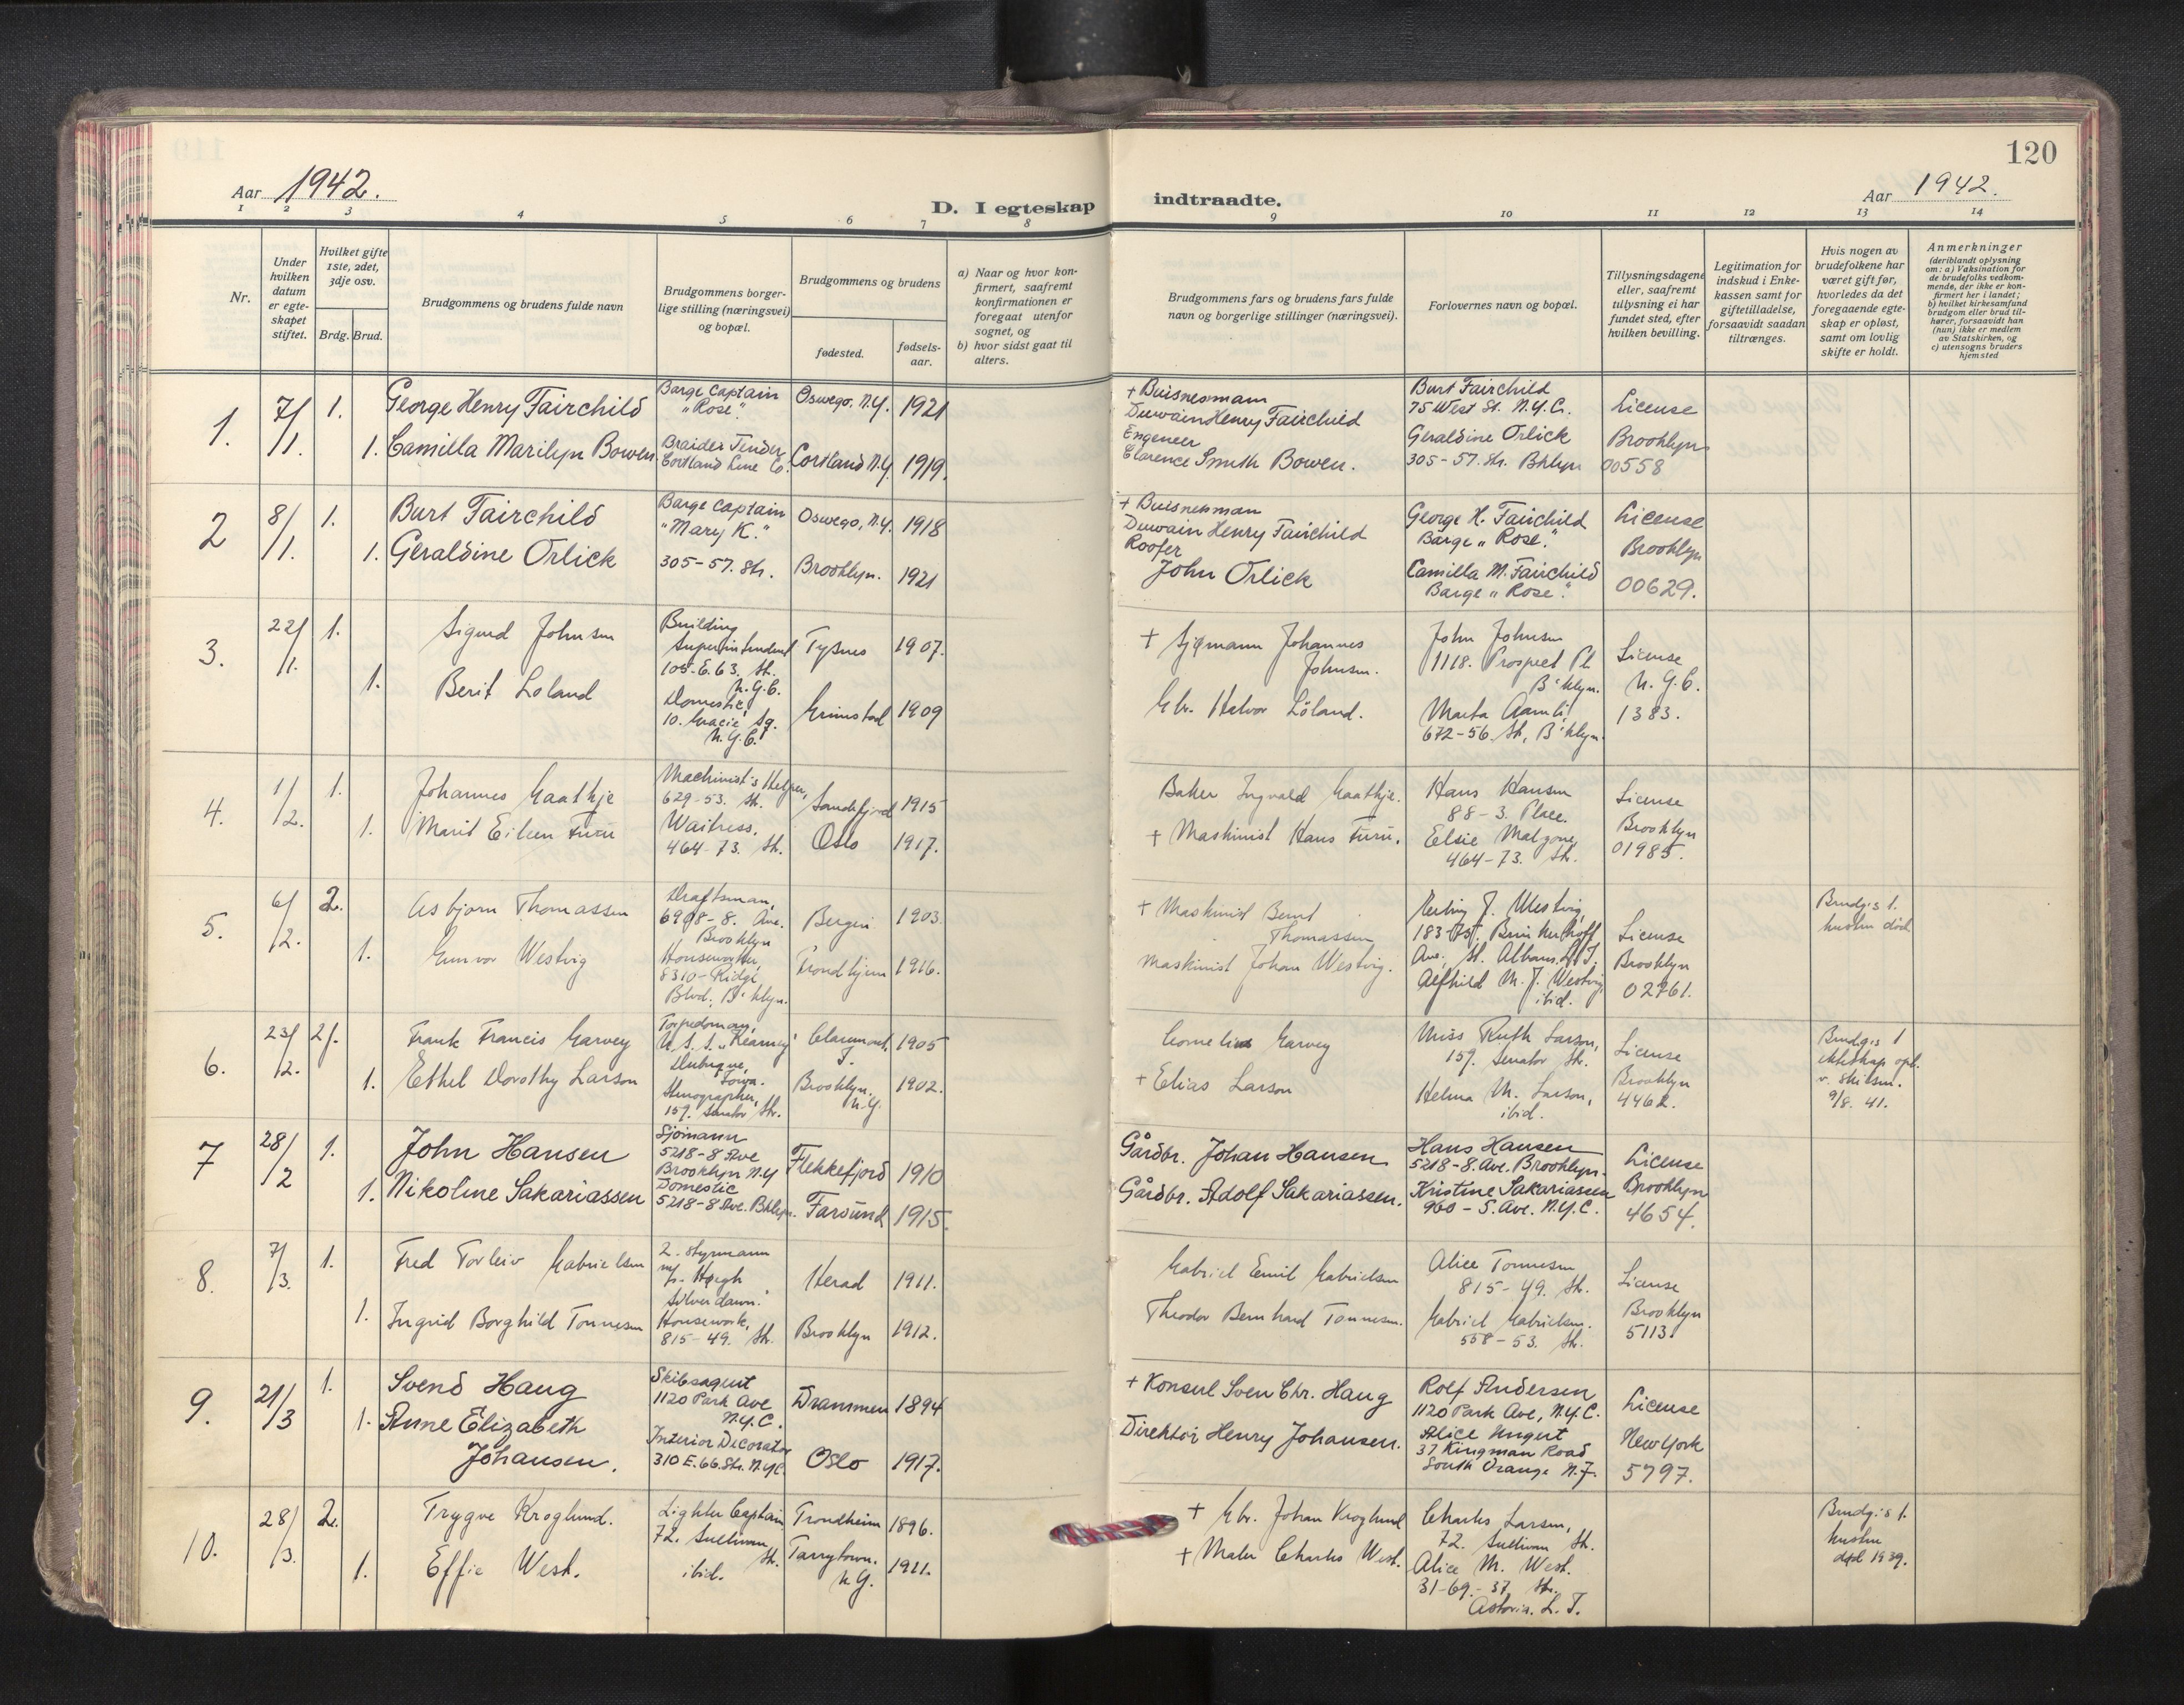 120
Aar 1942.
D. I egteskap indtraadte.
Aar 1942.
1 2 3 4 5 6 7 8 9 10 11 12 13 14
Nr.
Under
hvilken
datum
er egte-
skapet
stiftet.
Hvilket gifte
1ste, 2det,
3dje osv.
Brdg. Brud.
Brudgommens og brudens fulde navn
Brudgommens borger-
lige stilling (næringsvei)
og bopæl.
Brudgommens og brudens
fødested.
fødsels-
aar.
a) Naar og hvor kon-
firmert, saafremt
konfirmationen er
foregaat utenfor
sognet, og
b) hvor sidst gaat til
alters.
Brudgommens fars og brudens fars fulde
navn og borgerlige stillinger (næringsvei).
Forlovernes navn og bopæl.
Tillysningsdagene
eller, saafremt
tillysning ei har
fundet sted, efter
hvilken bevilling.
Legitimation for
indskud i Enke-
kassen samt for
giftetilladelse,
forsaavidt saadan
tiltrænges.
Hvis nogen av
brudefolkene har
været gift før,
hvorledes da det
foregaaende egte-
skap er opløst,
samt om lovlig
skifte er holdt.
Anmerkninger
(deriblandt oplysning
om: a) Vaksination for
de brudefolks vedkom-
mende, der ikke er kon-
firmert her i landet;
b) hvilket kirkesamfund
brudgom eller brud til-
hører, forsaavidt han
(hun) ikke er medlem
av Statskirken, og
c) utensogns bruders
hjemsted
1.
7/
/1.
1.
George Henry Fairchild
Barge Captain
"Rose".
Oswego, N.Y.
1921
+ Buisnesmann
Duwain Henry Fairchild
Burt Fairchild
75 West St. N.Y.C.
License
Brooklyn
00558
1.
Camilla Marilyn Bowen
Braider Tender
Cortland Line Co.
Cortland N.Y.
1919.
Engeneer
Clarence Smith Bowen.
Geraldine Orlick
305-57. Str. Bklyn
2
8/
/1.
1.
Burt Fairchild
Barge Captain
"Mary K."
Oswego, N.Y.
1918
+ Buisnesman
Duwain Henry Fairchild
George H. Fairchild
Barge "Rose".
License
Brooklyn
00629.
1.
Geraldine Orlick
305-57. Str.
Brooklyn.
1921
Roofer
John Orlick
Camilla M. Fairchild
Barge "Rose".
3.
22/
/1.
1.
Sigurd Johnsen
Building
Superintendent
105-E. 63. St.
N.Y.C.
Tysnes
1907.
+ Sjømann Johannes
Johnsen.
John Johnsen
1118. Prospect Pl
B'klyn.
License
N.Y.C.
1383.
1.
Berit Løland
Domestic,
10. Gracie Sq.
N.Y.C.
Grimstad
1909
Gbr. Halvor Løland.
Marta Aamli
672-56. St, B'klyn.
4.
1/
/2.
1.
Johannes Gaathje
Machinist's Helper,
629-53. St.
Sandefjord
1915
Baker Ingvald Gaathje.
Hans Hansen
88-3. Place.
License
Brooklyn
01985.
1.
Marit Eileen Furu
Waitress,
464-73. St.
Oslo
1917.
+ Maskinist Hans Furu.
Elsie Malgone
464-73. St.
5.
6/
/2.
2.
Asbjørn Thomassen
Draftsman,
6908-8. Ave.
Brooklyn
Bergen
1903.
+ Maskinist Bernt
Thomassen
Westvig,
183-
Ave, St. Albans. L.I.
License
Brooklyn
02761.
Brudg.s 1.
hustru død
1.
Gunvor Westvig
Houseworker,
8310-Ridge
Blvd, B'klyn.
Trondhjem
1916.
Maskinist Johan Westvig.
Alfhild M. J. Westvig,
ibid.
6.
23/
/2.
2.
Frank Francis Garvey
Torpedoman,
U.S.S. "Kearney"
Dubuque,
Iowa.
Claremont,
I.
1905
Cornelius Garvey
Miss Ruth Larson,
159. Senator Str.
License
Brooklyn
4462.
Brudg.s 1
ekteskap opl.
v. skilsm.
9/8. 41.
1.
Ethel Dorothy Larson
Stenographer,
159. Senator Str.
Brooklyn.
N.Y.
1902.
+ Elias Larson
Helma M. Larson,
ibid.
7
28/
/2
1.
John Hansen
Sjömann
5218-8 Ave
Brooklyn N.Y
Flekkefjord
1910
Gårdbr. Johan Hansen
Hans Hansen
5218-8. Ave. Brooklyn.
License
Brooklyn
4654.
1.
Nikoline Sakariassen
Domestic
5218-8 Ave. Bklyn.
Farsund
1915.
Gårdbr. Adolf Sakariassen.
Kristine Sakariassen
960-5. Ave. N.Y.C.
8.
7/
/3.
1.
Fred Torleiv Gabrielsen
2. styrmann
m/s. "Høegh
Silverdawn."
Herad
1911.
Gabriel Emil Gabrielsen
Alice Tønnesen
815-49. St.
License
Brooklyn
5113.
1.
Ingrid Borghild Tønnesen
Housework,
815-49. St.
Brooklyn
1912.
Theodor Bernhard Tønnesen.
Gabriel Gabrielsen.
558-53. St.
9.
21/
/3
1.
Svend Haug
Skibsagent
1120 Park Ave
N.Y.C.
Drammen
1894
+ Konsul Sven Chr. Haug
Rolf Andersen
1120 Park Ave, N.Y.C.
License
New York
5797.
1.
Anne Elizabeth
Johansen.
Interior Decorator
310 E. 66. Str. N.Y.C.
Oslo
1917.
Direktör Henry Johansen.
Alice Ungut
37 Kingman Road
South Orange N.J.
10.
28/
/3.
2.
Trygve Kroglund.
Lighter Captain
72. Sullivan
St.
Trondheim
1896.
+ Gbr. Johan Kroglund
Charles Larsen,
72. Sullivan St.
Brudg.s 1.
hustru
død 1939.
1.
Effie West.
ibid.
Tarrytown.
N.Y.
1911.
+ Maler Charles West.
Alice M. West.
31-69.-37. St.
Astoria. L.I.